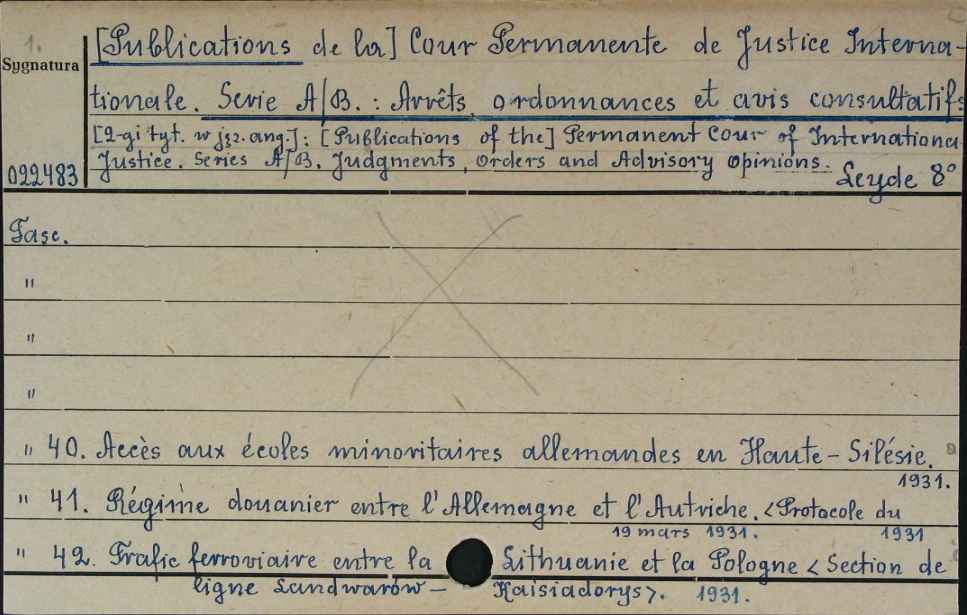 1.
Sygnatura
[Publications de la] Cour Permanente de Justice Interna-
tionale. Serie A/B. : Arrêts, ordonnances et avis consultatifs
[2-gi tyt. w jęz. ang.] : [Publications of the] Permanent Cour of Internationa
Justice. Series A/B. Judgments, Orders and Advisory Opinions.
022483
Leyde 8°
Fasc.
"
"
"
" 40. Accès aux écoles minoritaires allemandes en Haute-Silésie.
1931.
" 41. Régime douanier entre l'Allemagne et l'Autriche. <Protocole du
19 mars 1931.
1931
" 42. Trafic ferroviaire entre la Lithuanie et la Pologne <Section de
ligne Landwarów - Kaisiadorys>. 1931.